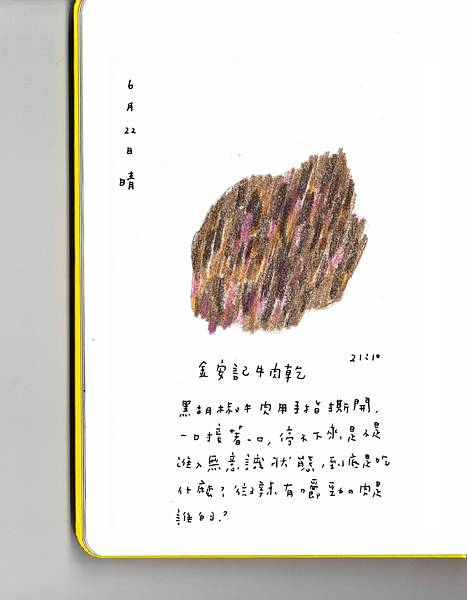 6月22日 晴
金安記牛肉乾
21:10
黑胡椒牛肉用手指撕開,
一口接著一口,停不下來,是不是
進入無意識狀態,到底是吃
什麼?從來沒有嚼動的肉是
誰的?